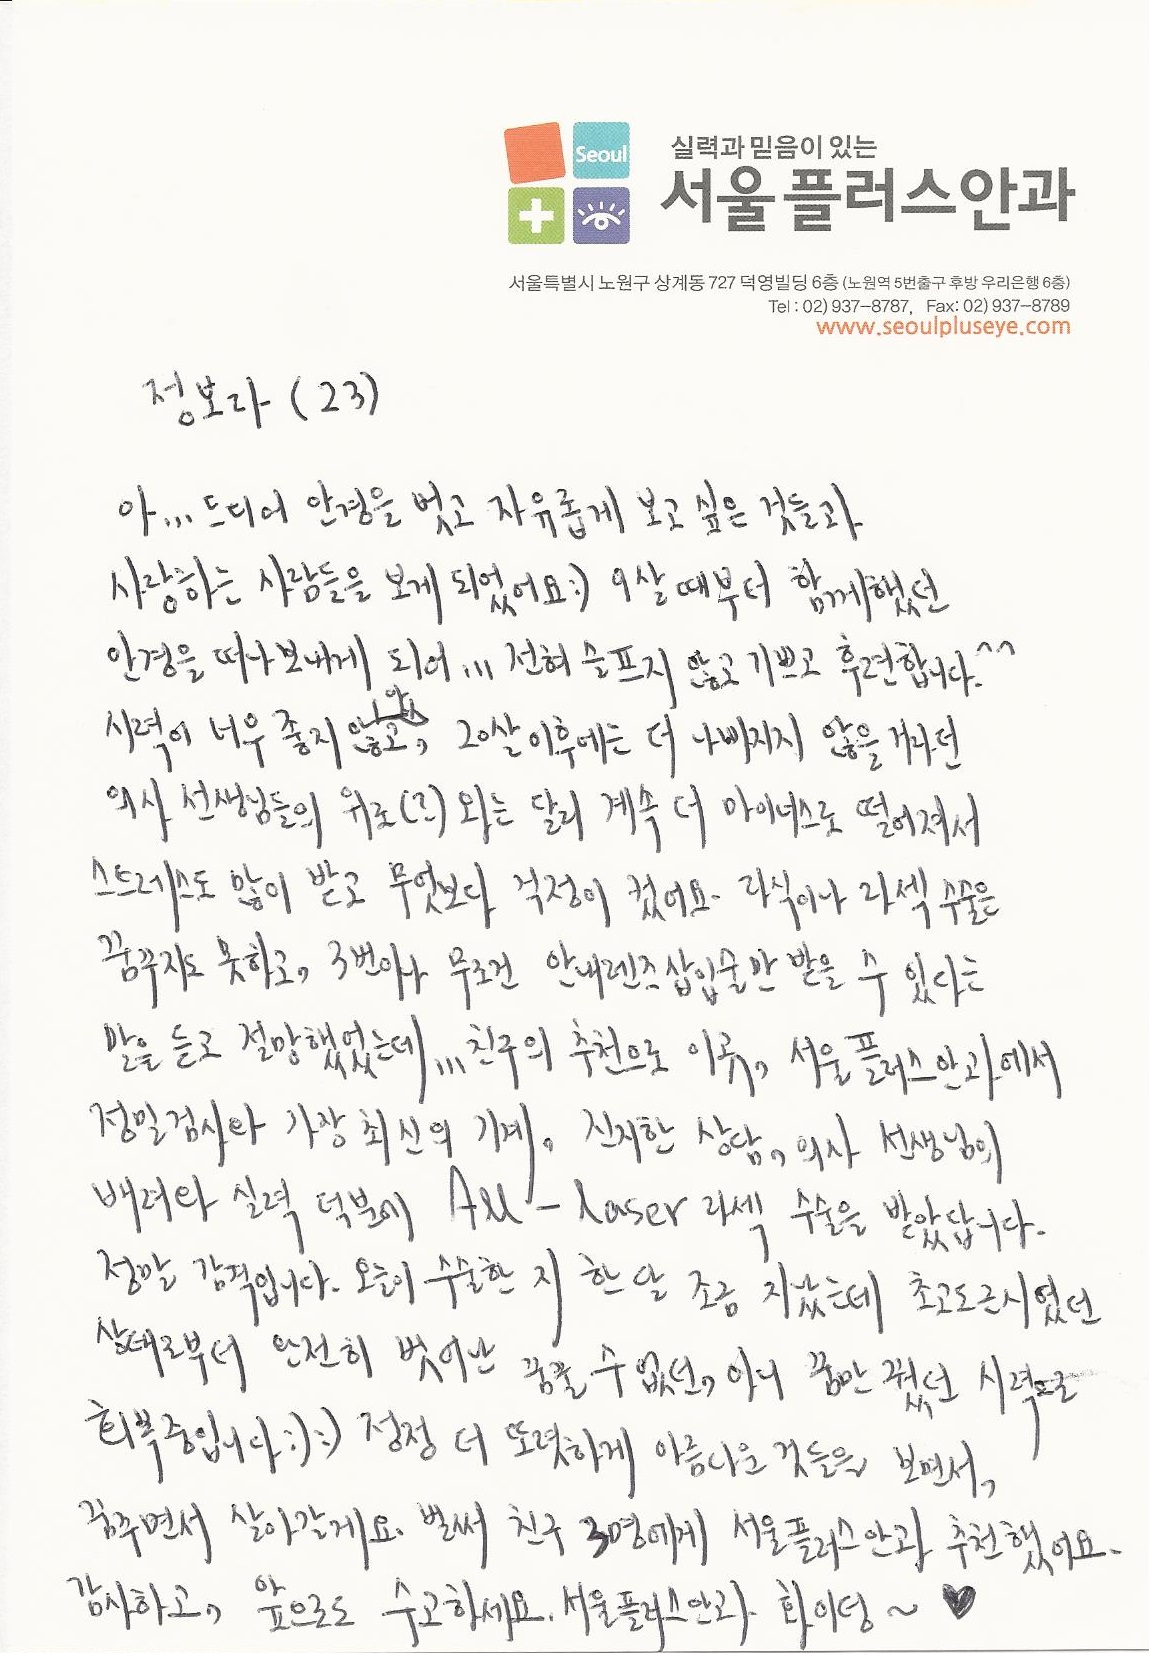 Seoul
실력과 믿음이 있는
서울플러스안과
서울특별시 노원구 상계동 727 덕영빌딩 6층 (노원역 5번출구 후방 우리은행 6층)
Tel : 02) 937-8787, Fax: 02) 937-8789
www.seoulpluseye.com
정보라 (23)
아... 드디어 안경을 벗고 자유롭게 보고 싶은 것들과
사랑하는 사람들을 보게 되었어요:) 9살 때부터 함께했던
안경을 떠나보내게 되어... 전혀 슬프지 않고 기쁘고 후련합니다.^^
시력이 너무 좋지 않고, 20살 이후에는 더 나빠지지 않을 거라던
의사 선생님들의 위로(?)와는 달리 계속 더 마이너스로 떨어져서
스트레스도 많이 받고 무엇보다 걱정이 컸어요. 라식이나 라섹 수술은
꿈꾸지도 못하고, 3번이나 무조건 안내렌즈삽입술만 받을 수 있다는
말을 듣고 절망했었는데... 친구의 추천으로 이곳, 서울플러스안과에서
정밀검사와 가장 최신의 기계, 진지한 상담, 의사 선생님의
배려와 실력 덕분에 All-laser 라섹 수술을 받았답니다.
정말 감격입니다. 오늘이 수술한 지 한 달 조금 지났는데 초고도근시였던
상태로부터 완전히 벗어난 꿈꿀 수 없던, 아니 꿈만 꿨던 시력으로
회복중입니다:):) 점점 더 또렷하게 아름다운 것들을 보면서,
꿈꾸면서 살아갈게요. 벌써 친구 3명에게 서울플러스안과 추천했어요.
감사하고, 앞으로도 수고하세요. 서울플러스안과 화이팅~ ♥